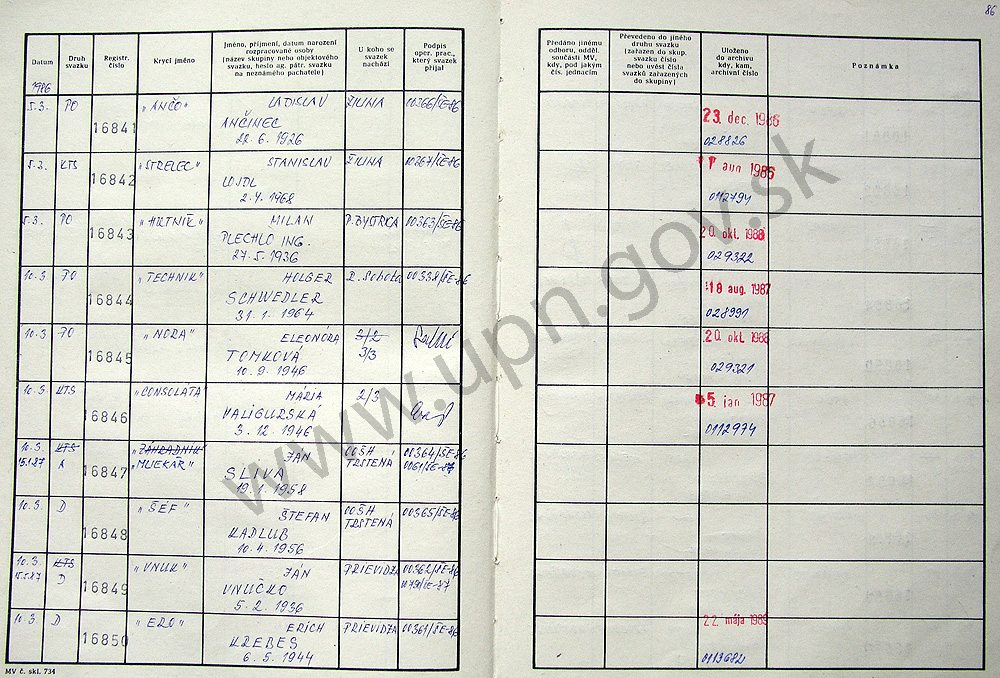 86
Datum
Druh svazku
Registr. číslo
Krycí jméno
Jméno, příjmení, datum narození
rozpracované osoby
(název skupiny nebo objektového
svazku, heslo ag. pátr. svazku
na neznámého pachatele)
U koho se
svazek
nachází
Podpis
oper. prac.,
který svazek
přijal
Předáno jinému
odboru, odděl.
součásti MV,
kdy, pod jakým
čís. jednacím
Převedeno do jiného
druhu svazku
(zařazen do skup.
svazku číslo
nebo uvést čísla
svazků zařazených
do skupiny)
Uloženo
do archivu
kdy, kam,
archivní číslo
Poznámka
1986
5.3. PO 16841 „ANČO" LADISLAV ŽILINA 00366/ŠE-86 23. dec. 1986
ANČINEC
22. 6. 1926 028826
5.3. KTS 16842 „STRELEC" STANISLAV ŽILINA 00367/ŠE-86 1986
LOJDL
2. 4. 1968 0112794
5.3. PO 16843 MILAN P. BYSTRICA 00363/ŠE-86 20. okt. 1988
PLECHLO ING.
27. 5. 1936 029322
10.3. PO 16844 „TECHNIK" HOLGER R. Sobota 00338/ŠE-86 18 aug. 1987
SCHWEDLER
31. 1. 1964 028991
10.3 PO 16845 „NORA" ELEONÓRA 3/2 20. okt. 1988
TOMKOVÁ 3/3
10. 9. 1946 029321
10.3. KTS 16846 „CONSOLATA" MÁRIA 2/3 5. jan 1987
HALIGURSKÁ
3. 12. 1946 0112974
10.3. KTS 16847 „ZÁHRADNÍK" JÁN OOŠH 00364/ŠE-86
15.1.87 A „MLIEKAR" TRSTENÁ 0061/ŠE-87
SLIVA
19. 1. 1958
10.3. D 16848 „ŠÉF" ŠTEFAN OOŠH 00365/ŠE-86
KADLUB TRSTENÁ
10. 4. 1956
10.3. KTS 16849 „VNUK" JÁN PRIEVIDZA 00362/ŠE-86
D VNUČKO
5. 2. 1936
10.3 D 16850 „ERO" ERICH PRIEVIDZA 00361/ŠE-86 22. mája 1989
KREBES
6. 5. 1944 0113682
MV č. skl. 734
www.upn.gov.sk